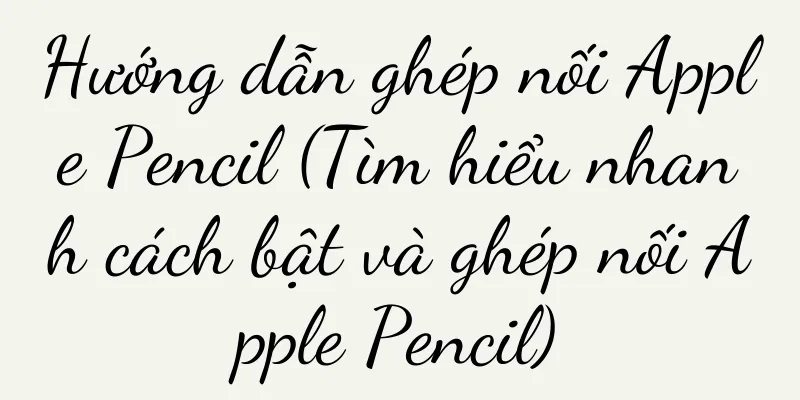 Hướng dẫn ghép nối Appl
e Pencil (Tìm hiểu nhan
h cách bật và ghép nối A
pple Pencil)